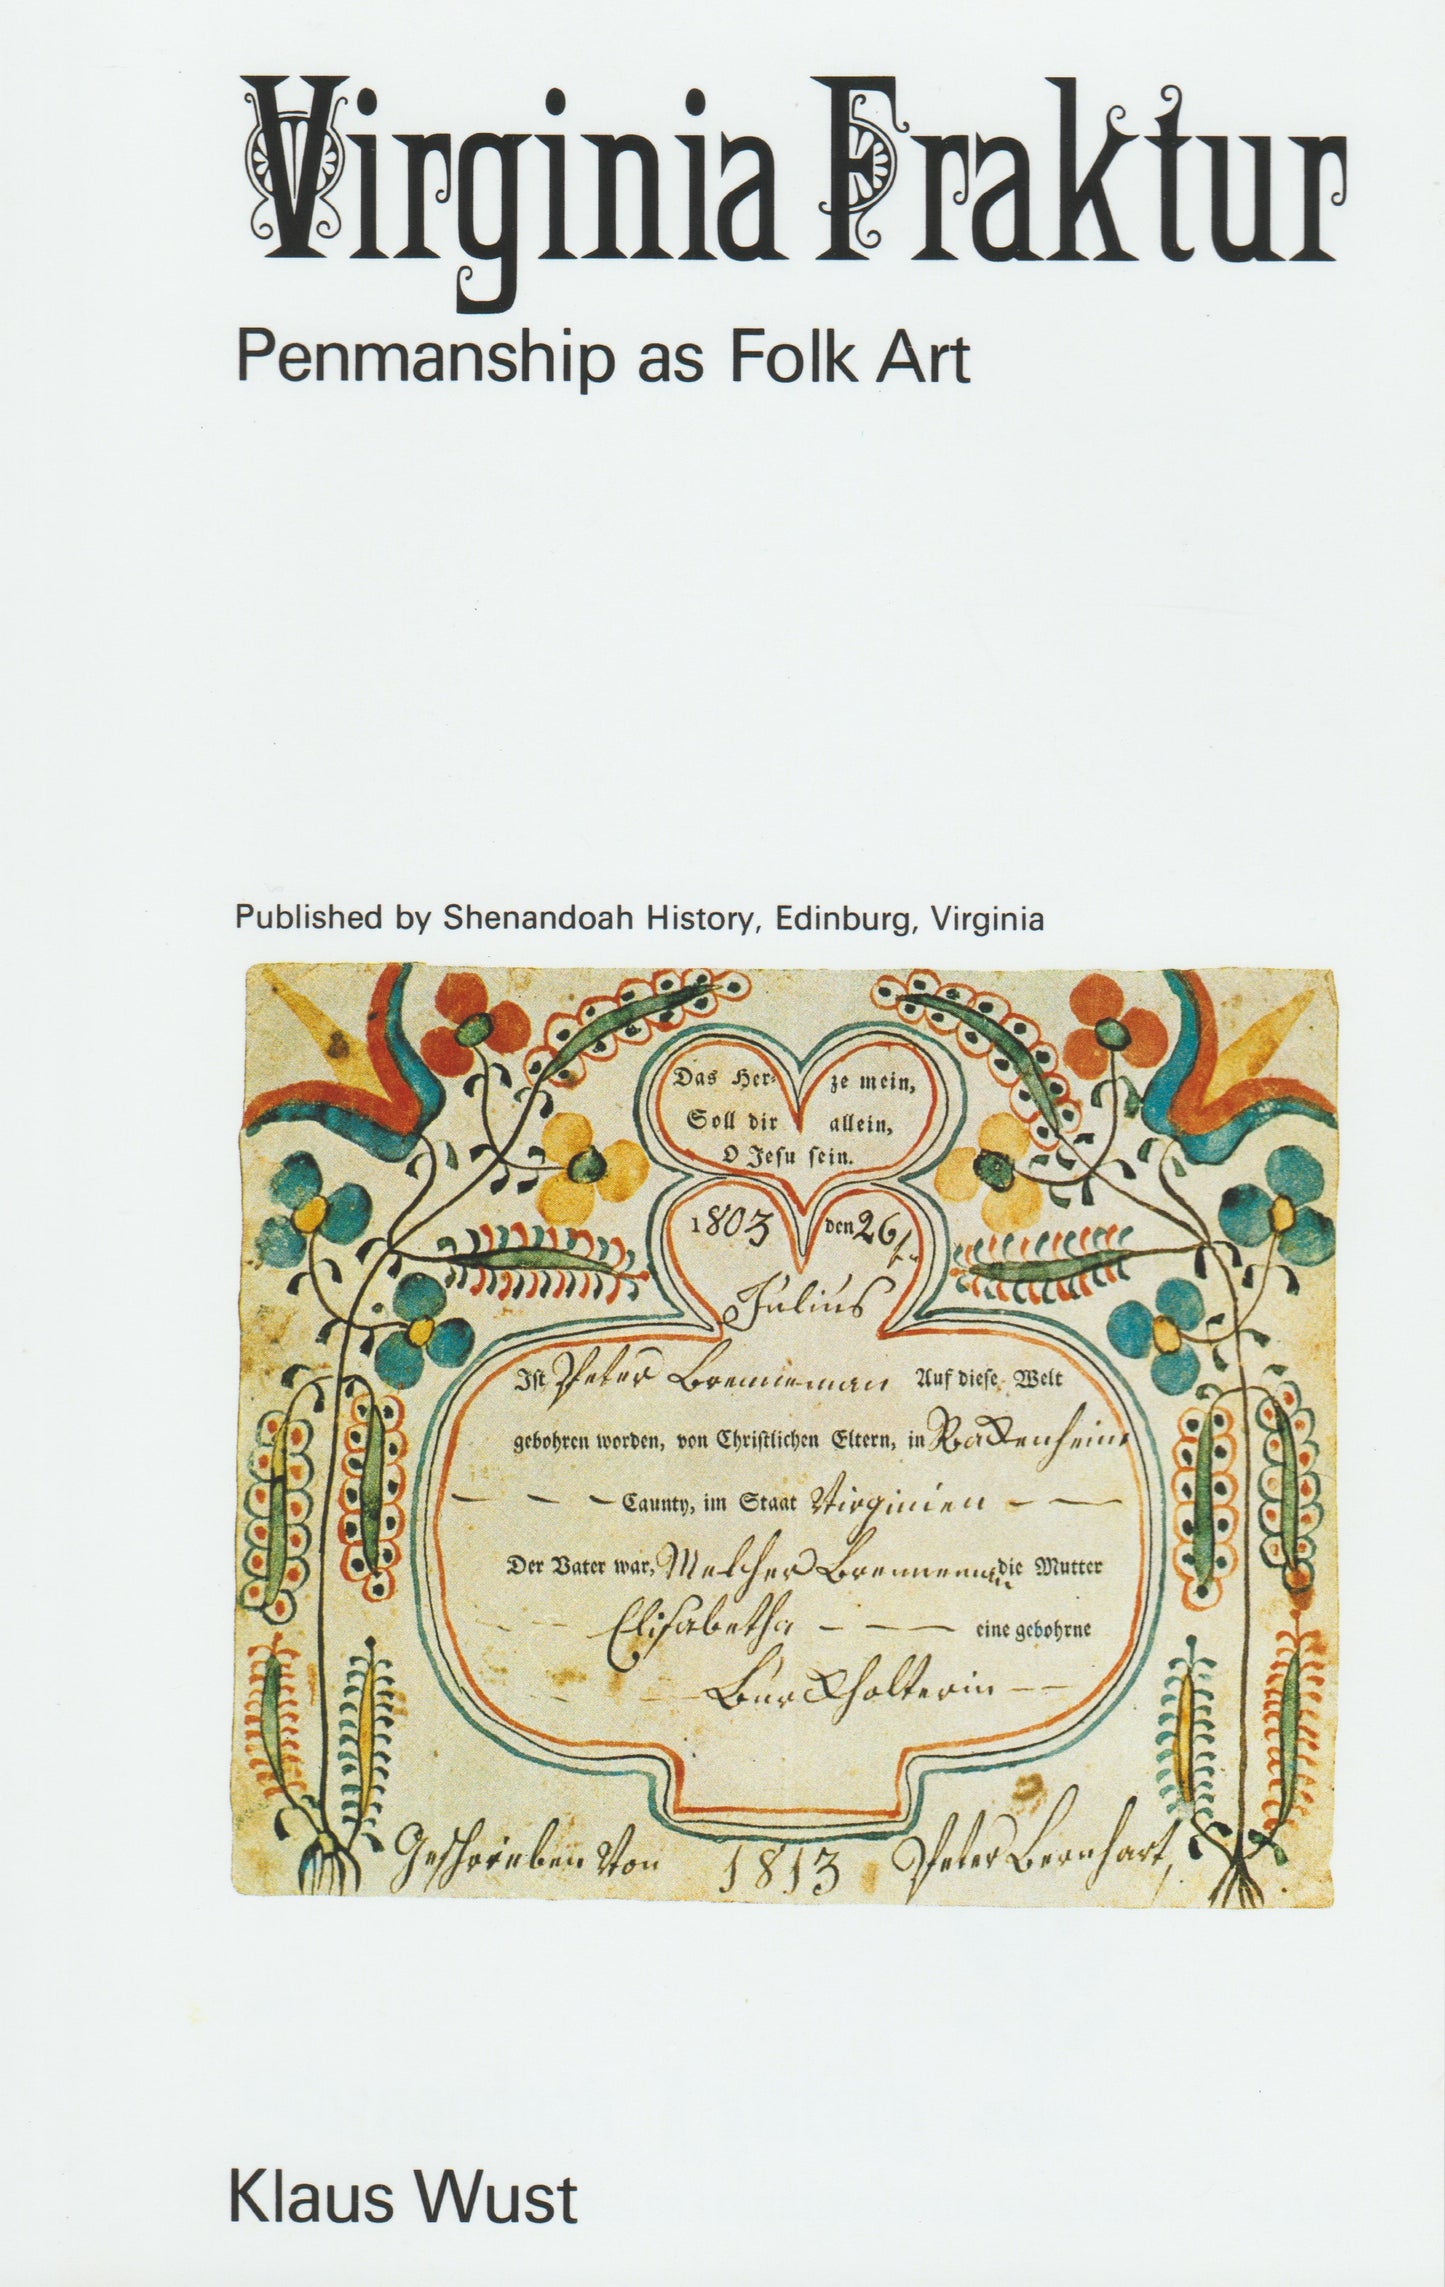 Virginia Fraktur
Penmanship as Folk Art
Published by Shenandoah History, Edinburg, Virginia
Das Her- ze mein,
Soll dir allein,
O Jesu sein.
1803 den 26
Julius
Ist Peter Brenneman Auf diese Welt
gebohren worden, von Christlichen Eltern, in Rackenheim
Caunty, im Staat Virginien
Der Vater war, Melcher Brenneman die Mutter
Elisabetha eine gebohrne
Burckholterin
Geschrieben Von 1813 Peter Bernhart,
Klaus Wust